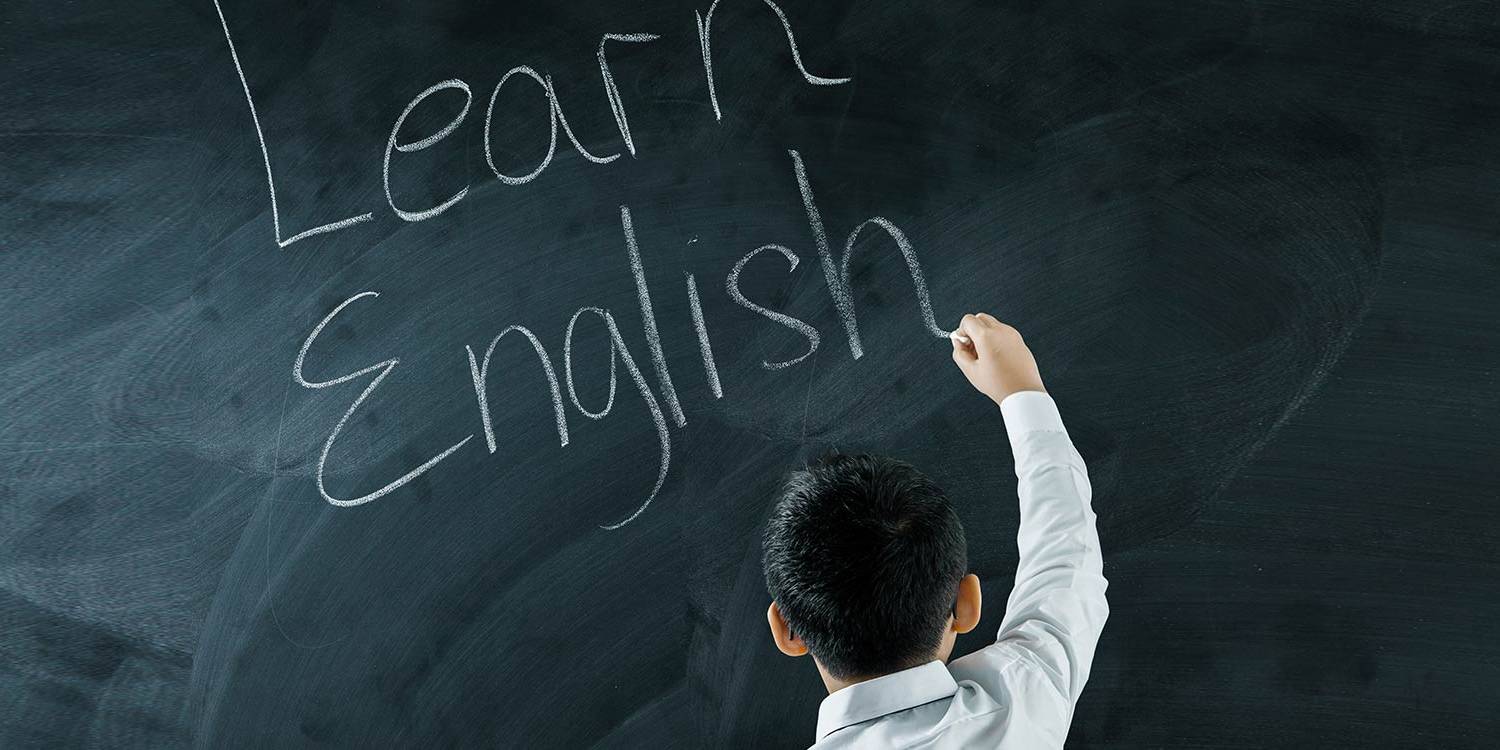 Learn
English